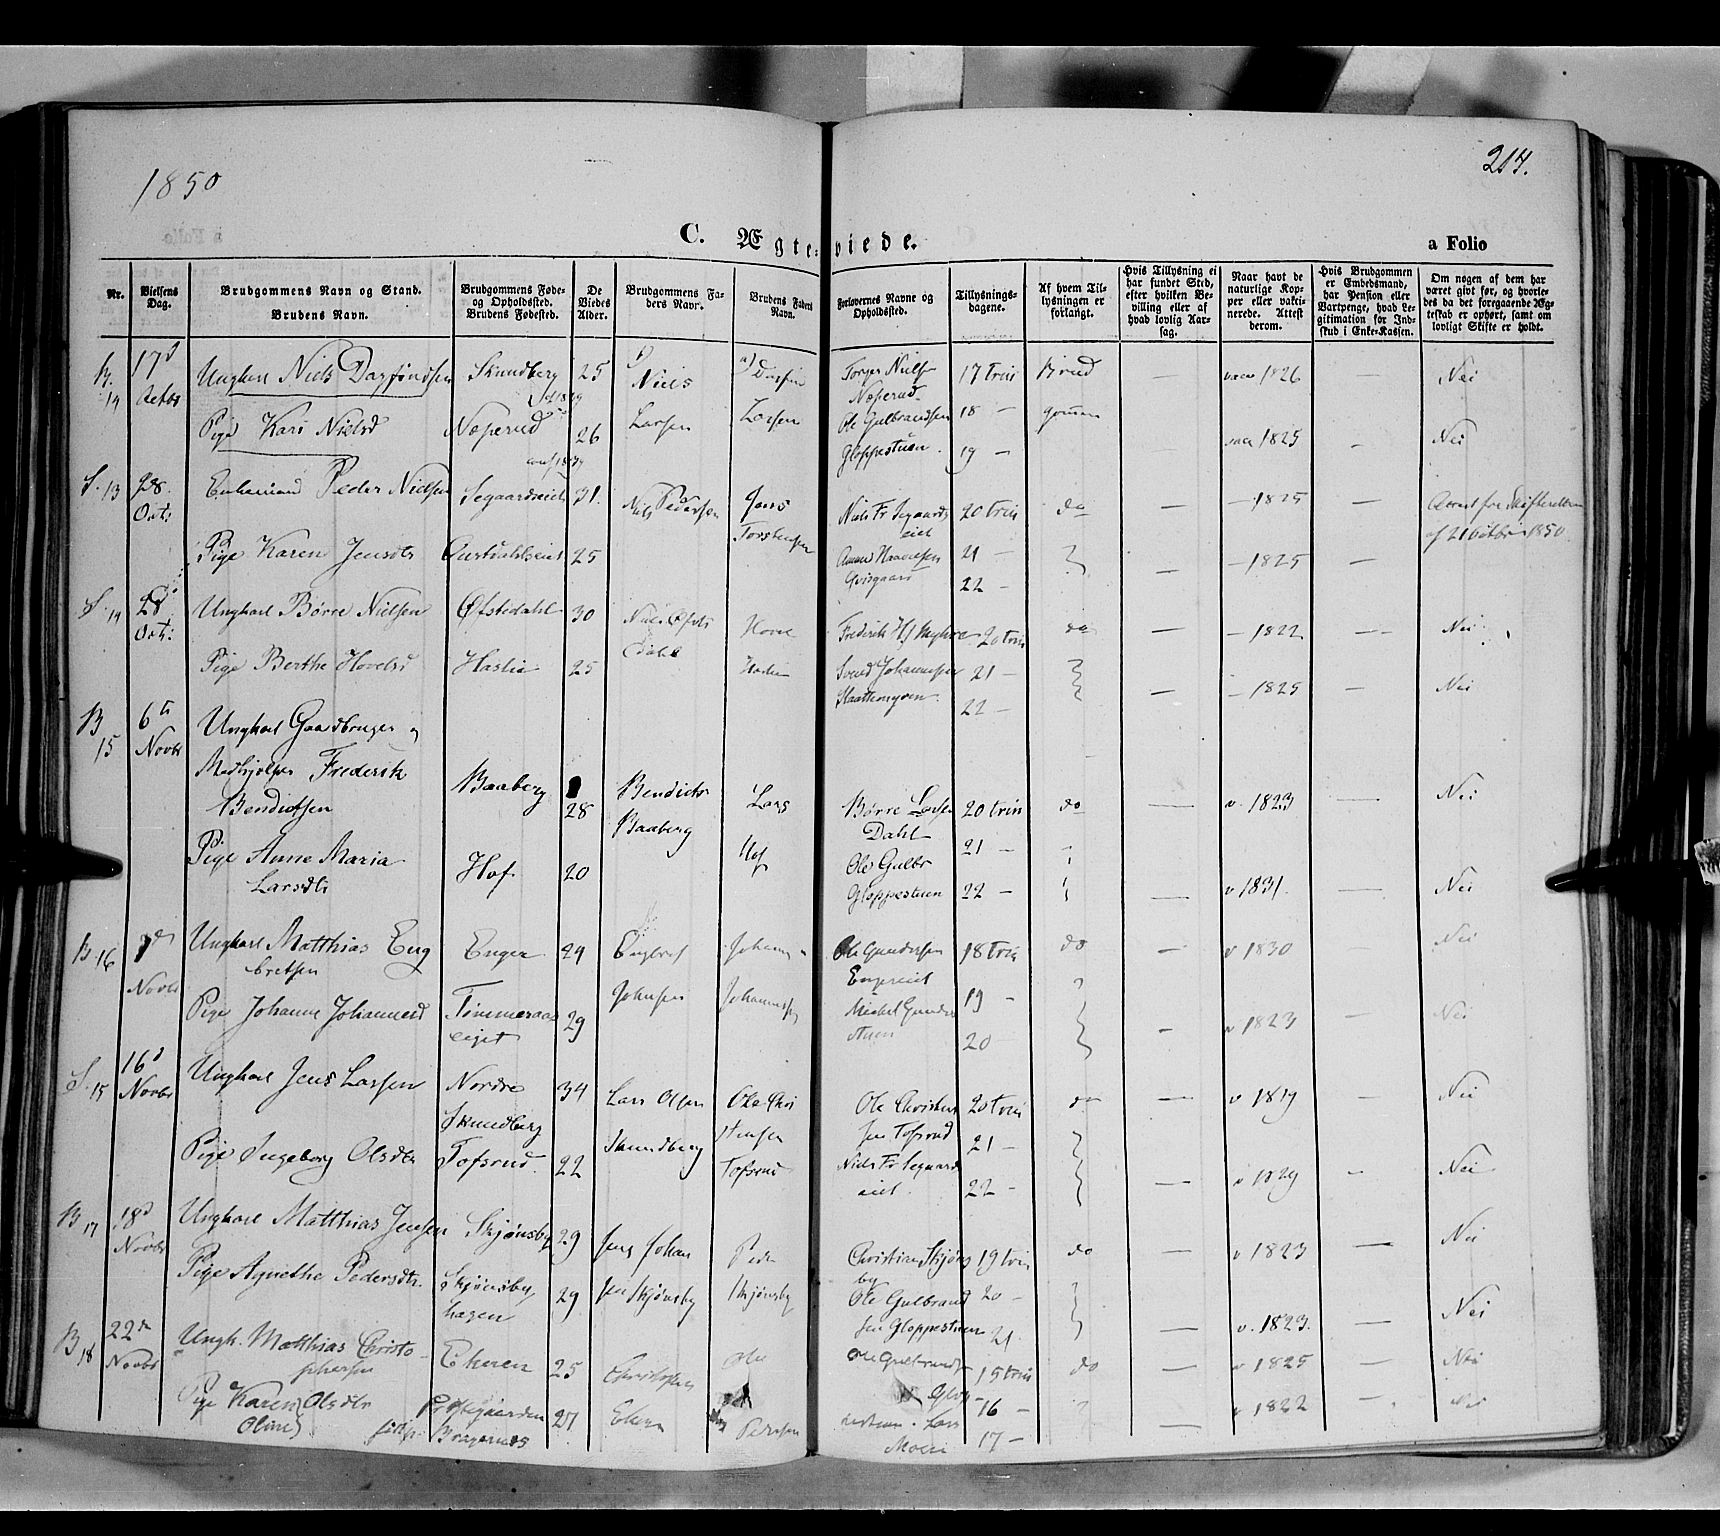 1850
214.
C. Ægteviede.
a Folio
Nr.
Vielsens Dag.
Brudgommens Navn og Stand.
Brudens Navn.
Brudgommens Føde- og Opholdssted.
Brudens Fødested.
De Viedes Alder.
Brudgommens Faders Navn.
Brudens Faders Navn.
Forlovernes Navne og Opholdsted.
Tillysnings-dagene.
Af hvem Tillysningen er forlangt.
Hvis Tillysning ei har fundet Sted, efter hvilken Bevilling eller af hvad lovlig Aarsag.
Naar havt de naturlige Kopper eller vaktinerede. Attest derom.
Hvis Brudgommen er Embedsmand, har Pension eller Vartpenge, hvad Legitimation for Indskud i Enke-Kassen.
Om nogen af dem har været givt før, og hvorledes da det foregaaende Ægteskab er ophørt, samt om lovligt Skifte er holdt.
B. 14 17d Octbr Ungkarl Niels Dagfindsen Skundberg 25 Niels Torger Niels 17 trin Brud — 1826 — Nei
Pige Kari Nielsd Næperud 26 Larsen Larsen Ole Gulbrandsen 18 — — 1825 — Nei
Gloppestuen. 19 —
S. 13 28. Oct: Enkemand Peder Nielsen Segaardseiet 31. Niels Pedersen Jens Niels Fr Segaards eiet 20 trin do — — 1825 —
Pige Karen Jensdtr 25 Torstensen 21 — — — 1825 — af 21 October 1850.
22 —
S. 14 28 Oct: Ungkarl Børre Nielsen Øfstedahl 30 Niels Øfste dahl Frederik 20 trin do — — 1822 — Nei
Pige Berthe Hovelsd Haslie 25 Svend Johannessen 21 — — — 1825 — Nei
22 —
B 15 6te Novbr Ungkarl Gaardbruger og
Medhjelper Frederik
Bendictsen Baaberg 28 Bendict Baaberg Lars Børre Larsen Dahl 20 trin do — v 1823 — Nei
Pige Anne Maria
Larsdtr Hof 20 Hof Ole Gulbr Gloppestuen 21 — 22 — — v 1831. — Nei
B. 16 Novbr Ungkarl Matthias Eng
bretsen Enger 29 Engbret Johannes Ole Gundersen Engereiet 18 trin do — v 1830 Nei
Pige Johanne Johannesd Tømmeraas eiet 29 Johnsen Johannessen Michel 19 — 20 — — v 1823 — Nei
S. 15 16d Novbr Ungkarl Jens Larsen Nordre Skundberg 34 Lars Olsen Skundberg Ole Chri stensen Ole Christen sen Tofsrud 20 trin do — v 1819 — Nei
Pige Ingeborg Olsdtr Tofsrud. 22 Tofsrud Niels Fr Segaard eiet. 21 — 22 — — v 1829 — Nei
B 17 18d Novbr Ungkarl Matthias Jensen Skjønsby 29 Jens Johan Peder Christian Skjøns by 19 trin do — v 1823 — Nei
Pige Agnethe Pedersdtr. Skjønsby hagen 29 sen Skjønsby Skjønsby Ole Gulbrand sen Gloppestuen 20 — 21 — v. 1823. — Nei
B 18 22de Novbr Ungk. Matthias Christo-
phersen Ekeren 25 Christophersen Ole Ole Gulbrandsen 15 trin do — v 1825 — Nei
Pige Karen Olsdtr
Oline Præstegaarden Bragernes 27 Ekern Pedersen Lars Moen 16 — 17 — — v 1822 — Nei